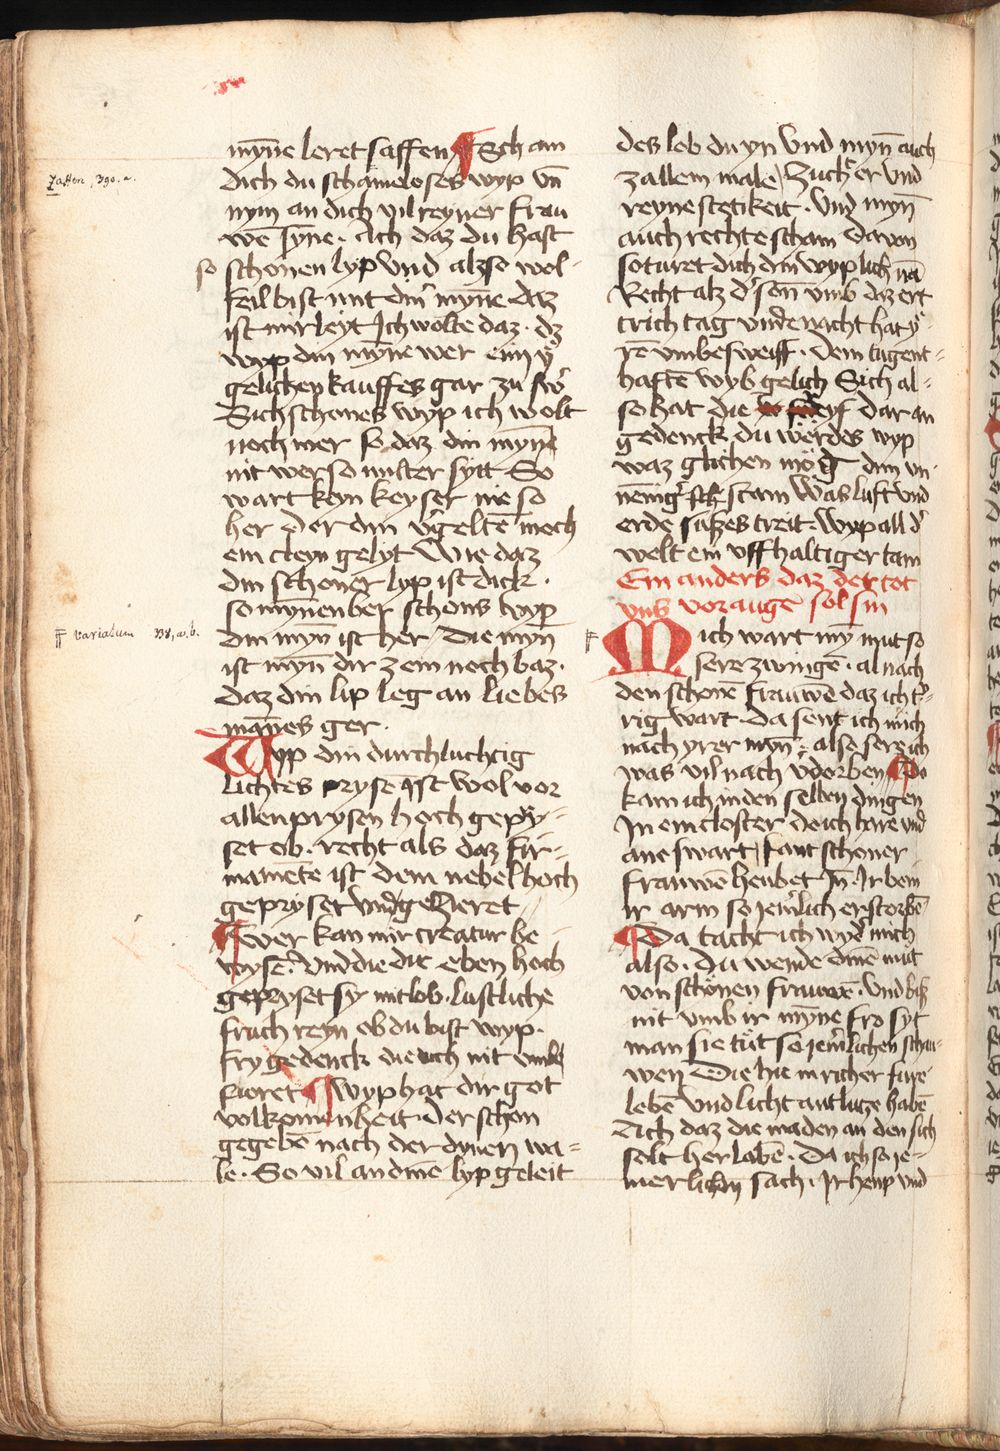 myn̄e leret saffen Sch am
dich du schameloses wyp vn̄
nym an dich vil reyner frau
wē syne. Ach daz du hast
so schonen lyp vnd alzso wol-
keil bist mit din̄ myn̄e daz
ist mir leyt Ich wolte daz. dz
wyp din myn̄e wer eim
gelichen kauffes gar zu
Sich schones wyp ich wolt
noch mer so daz din myn̄e
nit wer so milter sytt So
wart keyn keyser nie so
her der din v'geltē moch
ein cleyn gelyt Wie daz
din schoner lyp ist dick.
so mynenber schons wyp
din myn̄ ist her Die myn̄
ist myn̄ dir zem noch baz.
daz din lip leg an liebes
man̄es ger.
Wyp din durchluchtig
lichtes pryse ist wol vor
allen prysen hoch gepry-
set ob. recht als daz fir-
mamēte ist dem nebel hoch
gepryset vnd gezieret
wer kan mir creatur be
wyse. Vnd die die eben hoch
gepryset sy mit lob. lustliche
fruch reyn ob du bist wyp.
fry gedenck die uch nit
wyp hat dir got
volkomenheit der schon
gegebē nach der dynen wa-
le. So vil an dinē lyp geleit
des lob du yn Vnd myn̄ auch
zallem male Zucht er vnd
reyne stetikeit. Vnd myn̄
auch rechte scham Davon
so turet dich din wyplich nā
Recht alz d' son̄ vmb daz ert
trich tag vnde nacht hat y-
rē vmbesweiff. Dem tugent-
haftē wyb gelich Sich al-
so hat die dar an
gedenck du werdes wyp
waz glichen mog din vn-
stam Was luft vnd
erde susses treit. Wyp all d'
welt ein vffhaltiger tam
Ein anders daz der tot
vns vor auge sol sin
Mich wart my mut so
sere zwingē. al nach
den schonē frauwē daz ich t'-
rig wart. Da sent ich mich
nach yrer myn̄. also sere ich
was vil nach v'dorben Do
kam ich in den selben dingen
In ein closter do ich bare vnd
ane swart fant schoner
frauwē heubet Jn̄. Ir bein
ir arm so iem'lich erstorbē
Da tacht ich wyd' mich
also. Du wende dinē mut
von schönen frauwē. vnd biß
nit vmb ir myn̄e fro syt
man sie tüt so iem'lichen schau-
wen Die hie in richer fure
lebē vnd licht antlutze habē
Ach daz die maden an den sich
solt her labē. Da ich so ie-
merlichen sach. Ir heup vnd
variatum 398, a. b.